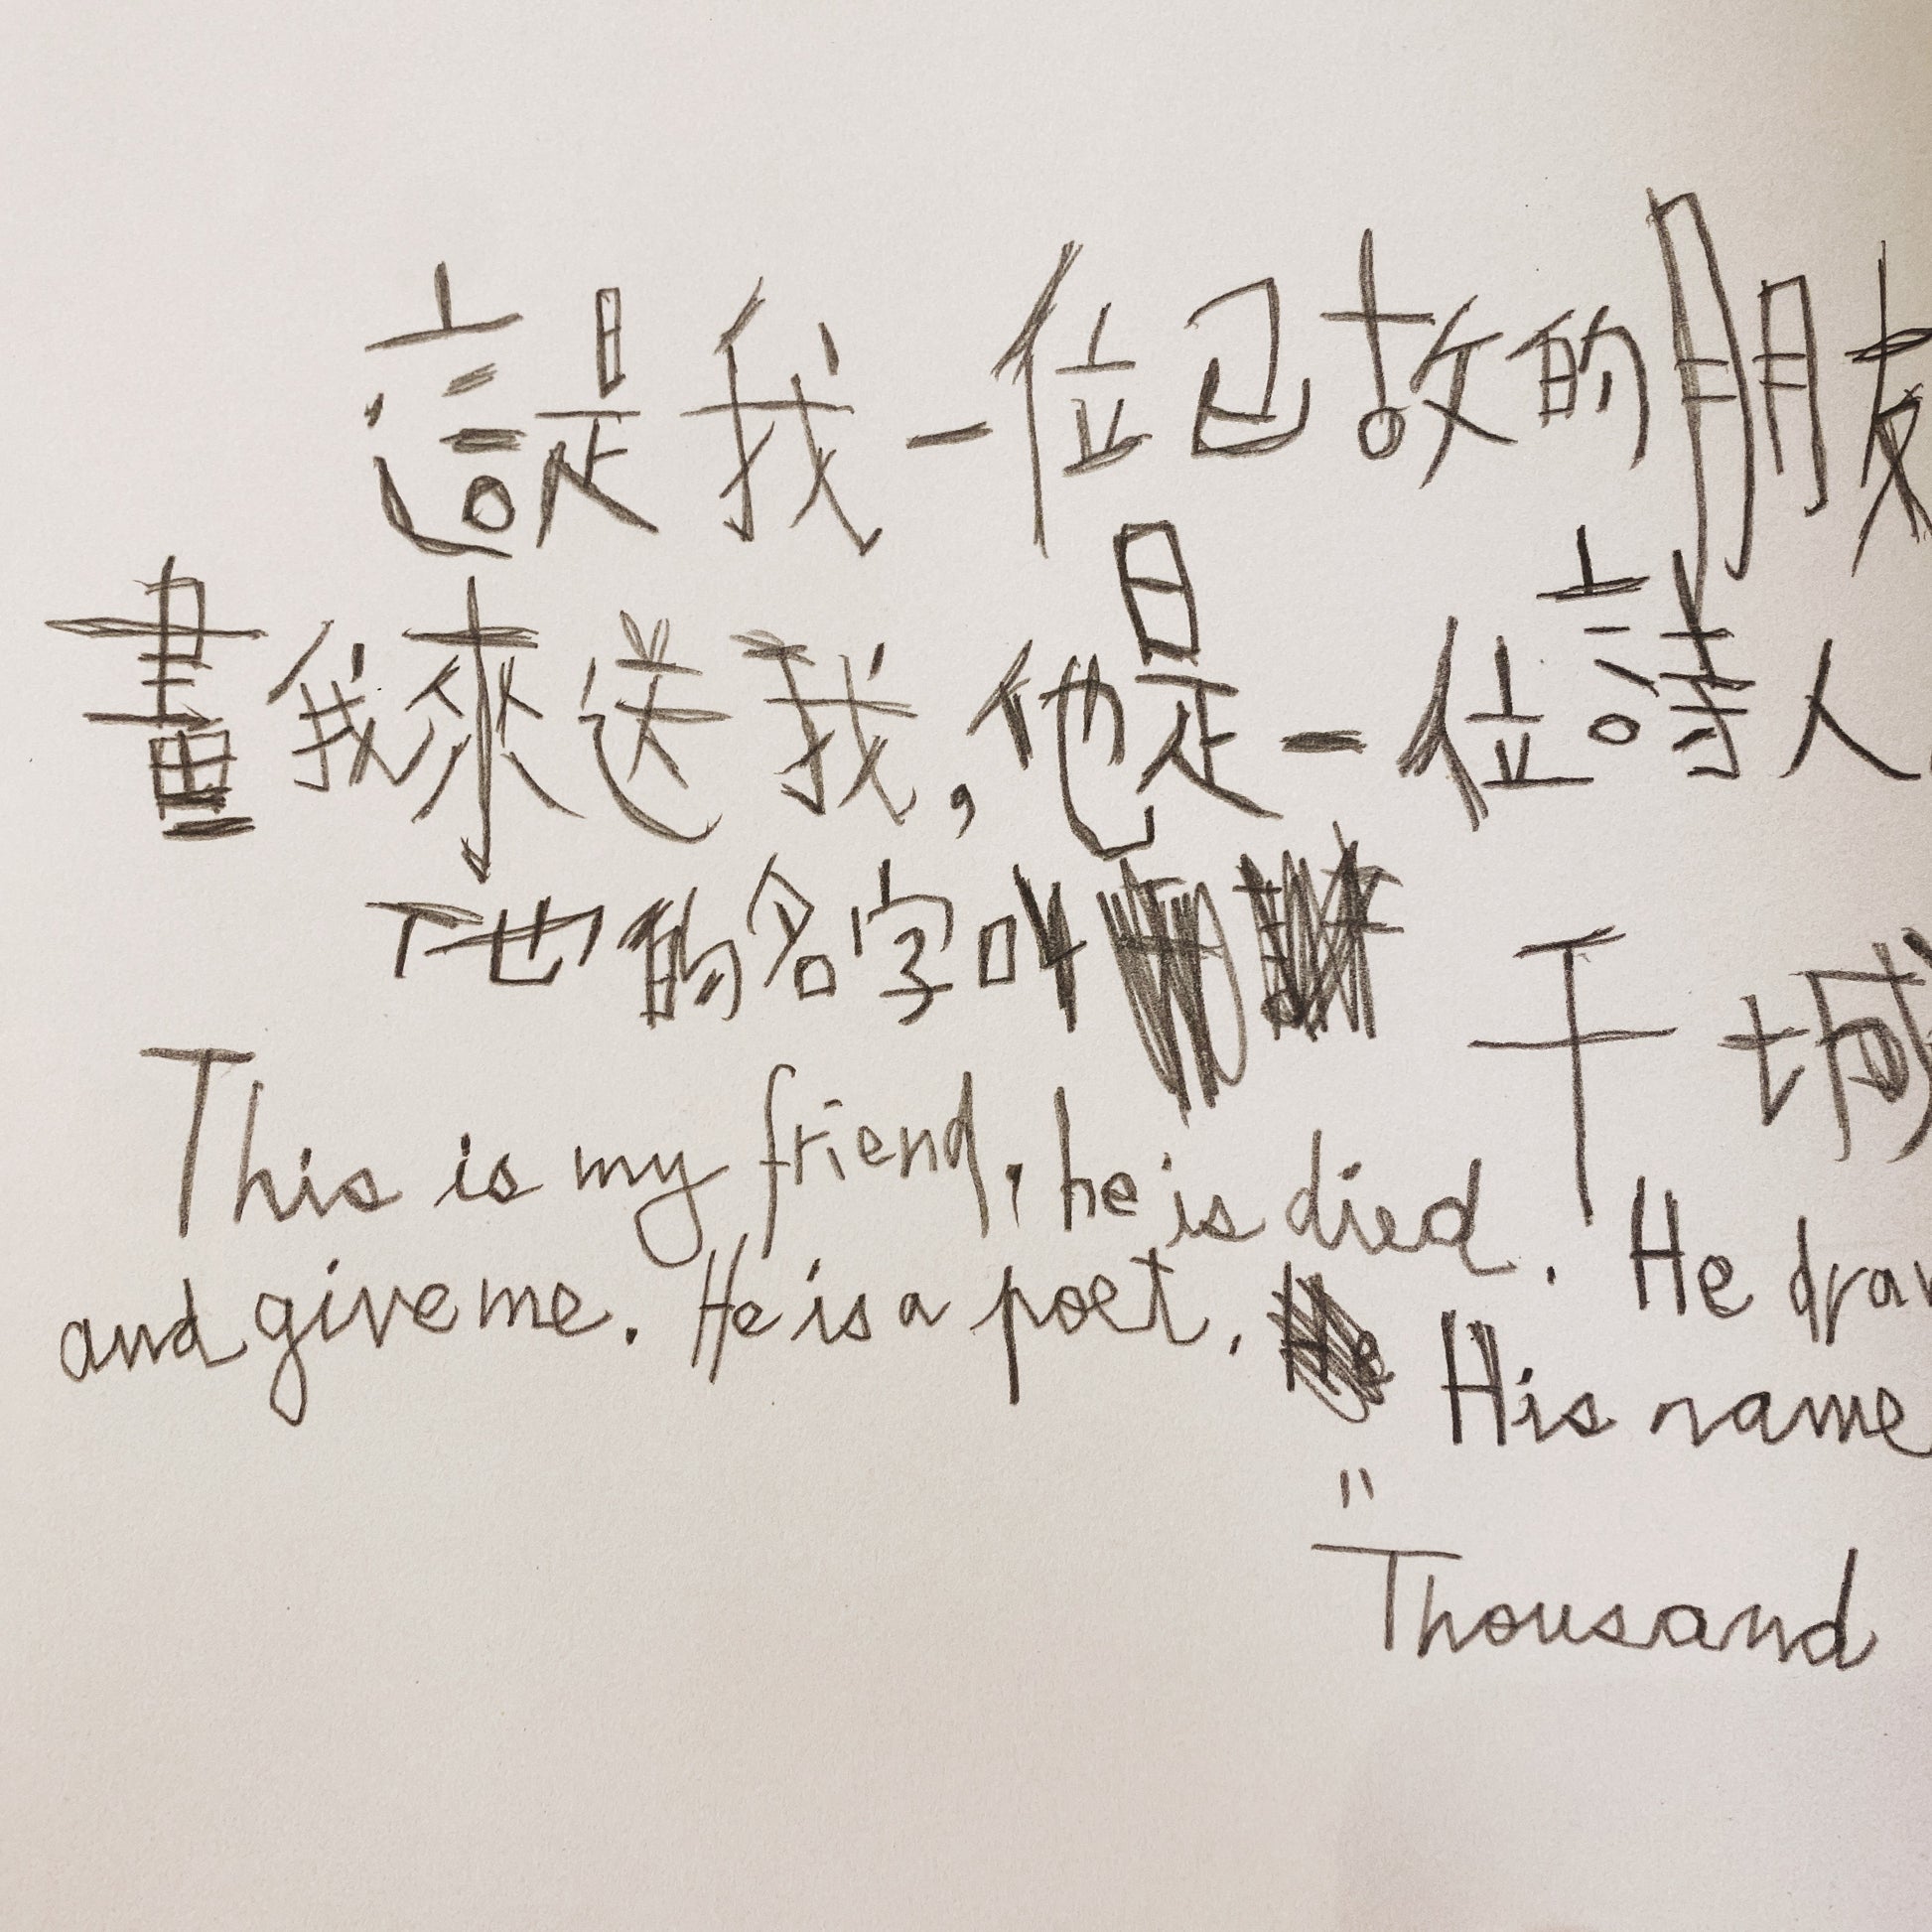 這是我一位已故的朋友
畫我來送我,他是一位詩人
他的名字叫 千城
This is my friend, he is died. He draw
and give me. He is a poet. He His name
"
Thousand